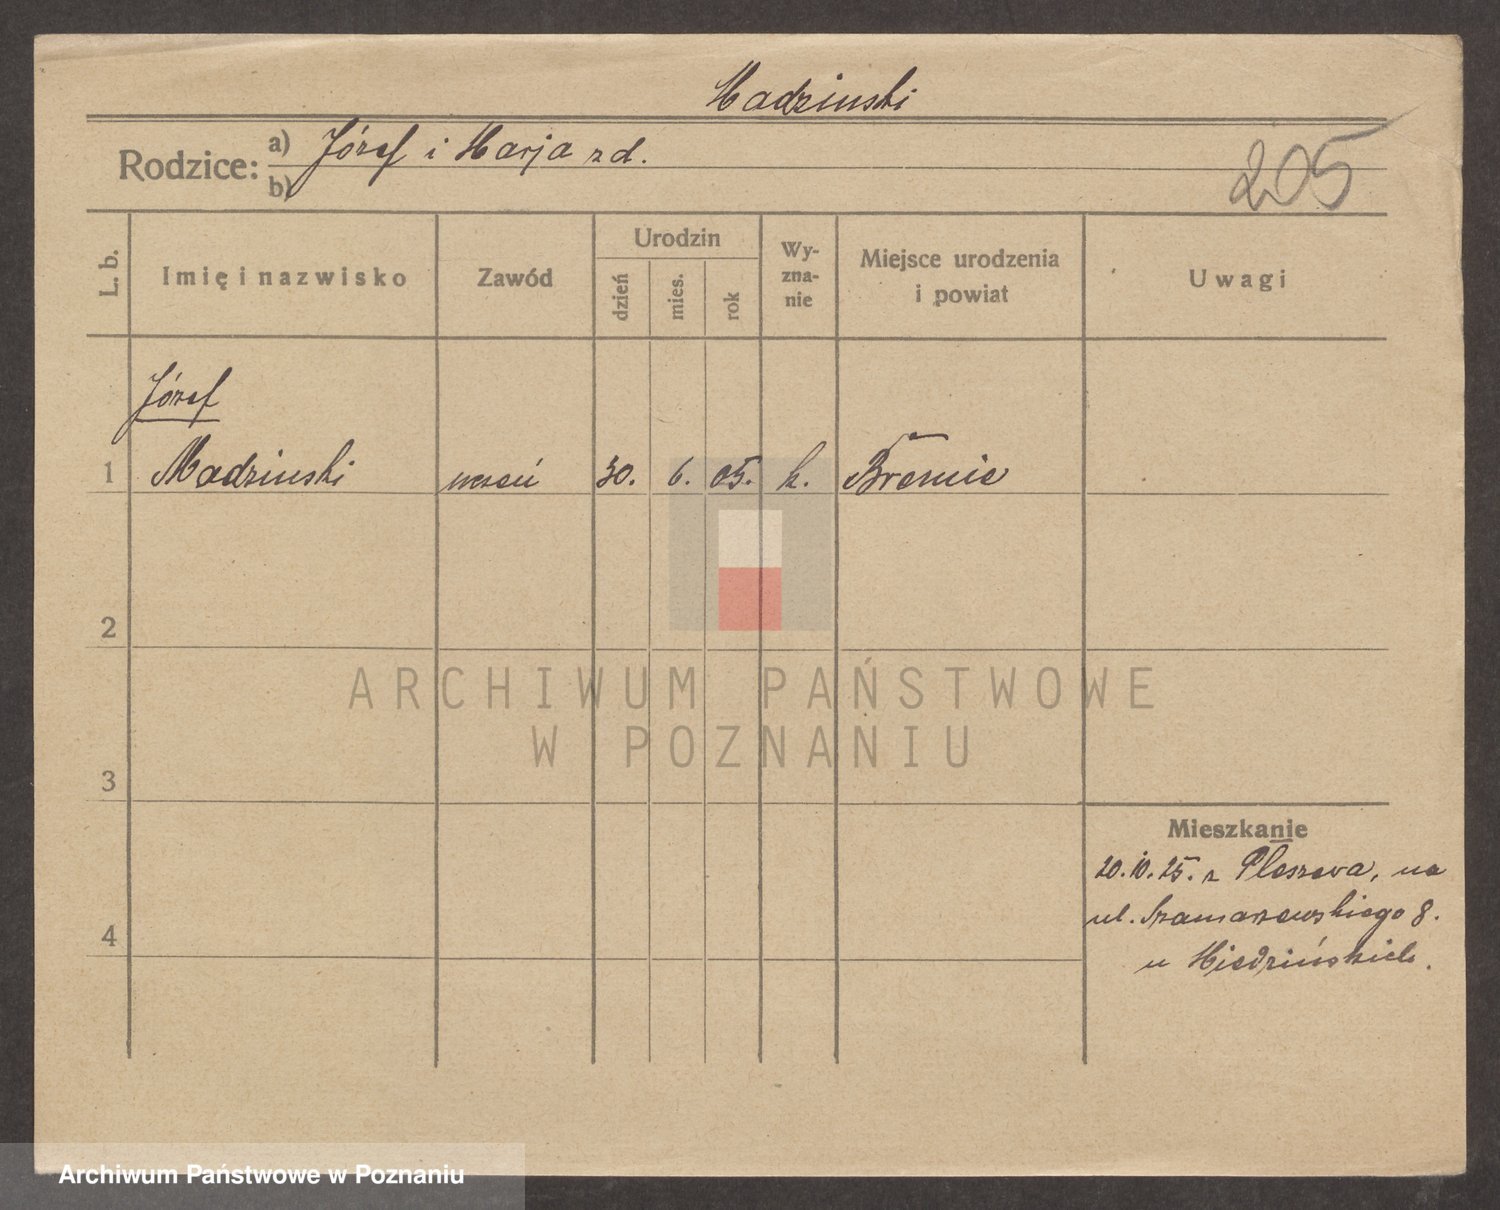 Madzinski
Rodzice: a) Józef i Marja zd.
b)
205
L. b.
Imię i nazwisko
Zawód
Urodzin
dzień
mies.
rok
Wy-
zna-
nie
Miejsce urodzenia
i powiat
Uwagi
Józef
1 Madzinski uczeń 30. 6. 05. k. Bremie
2
3
4
Mieszkanie
20.10.25. z Pleszewa, na
ul. Szamarzewskiego 8.
u Miedzińskich.
ARCHIWUM PAŃSTWOWE
W POZNANIU
Archiwum Państwowe w Poznaniu